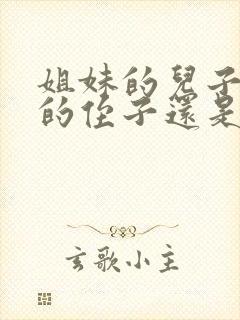 姐妹的兒子
的侄子還是
玄歌小主